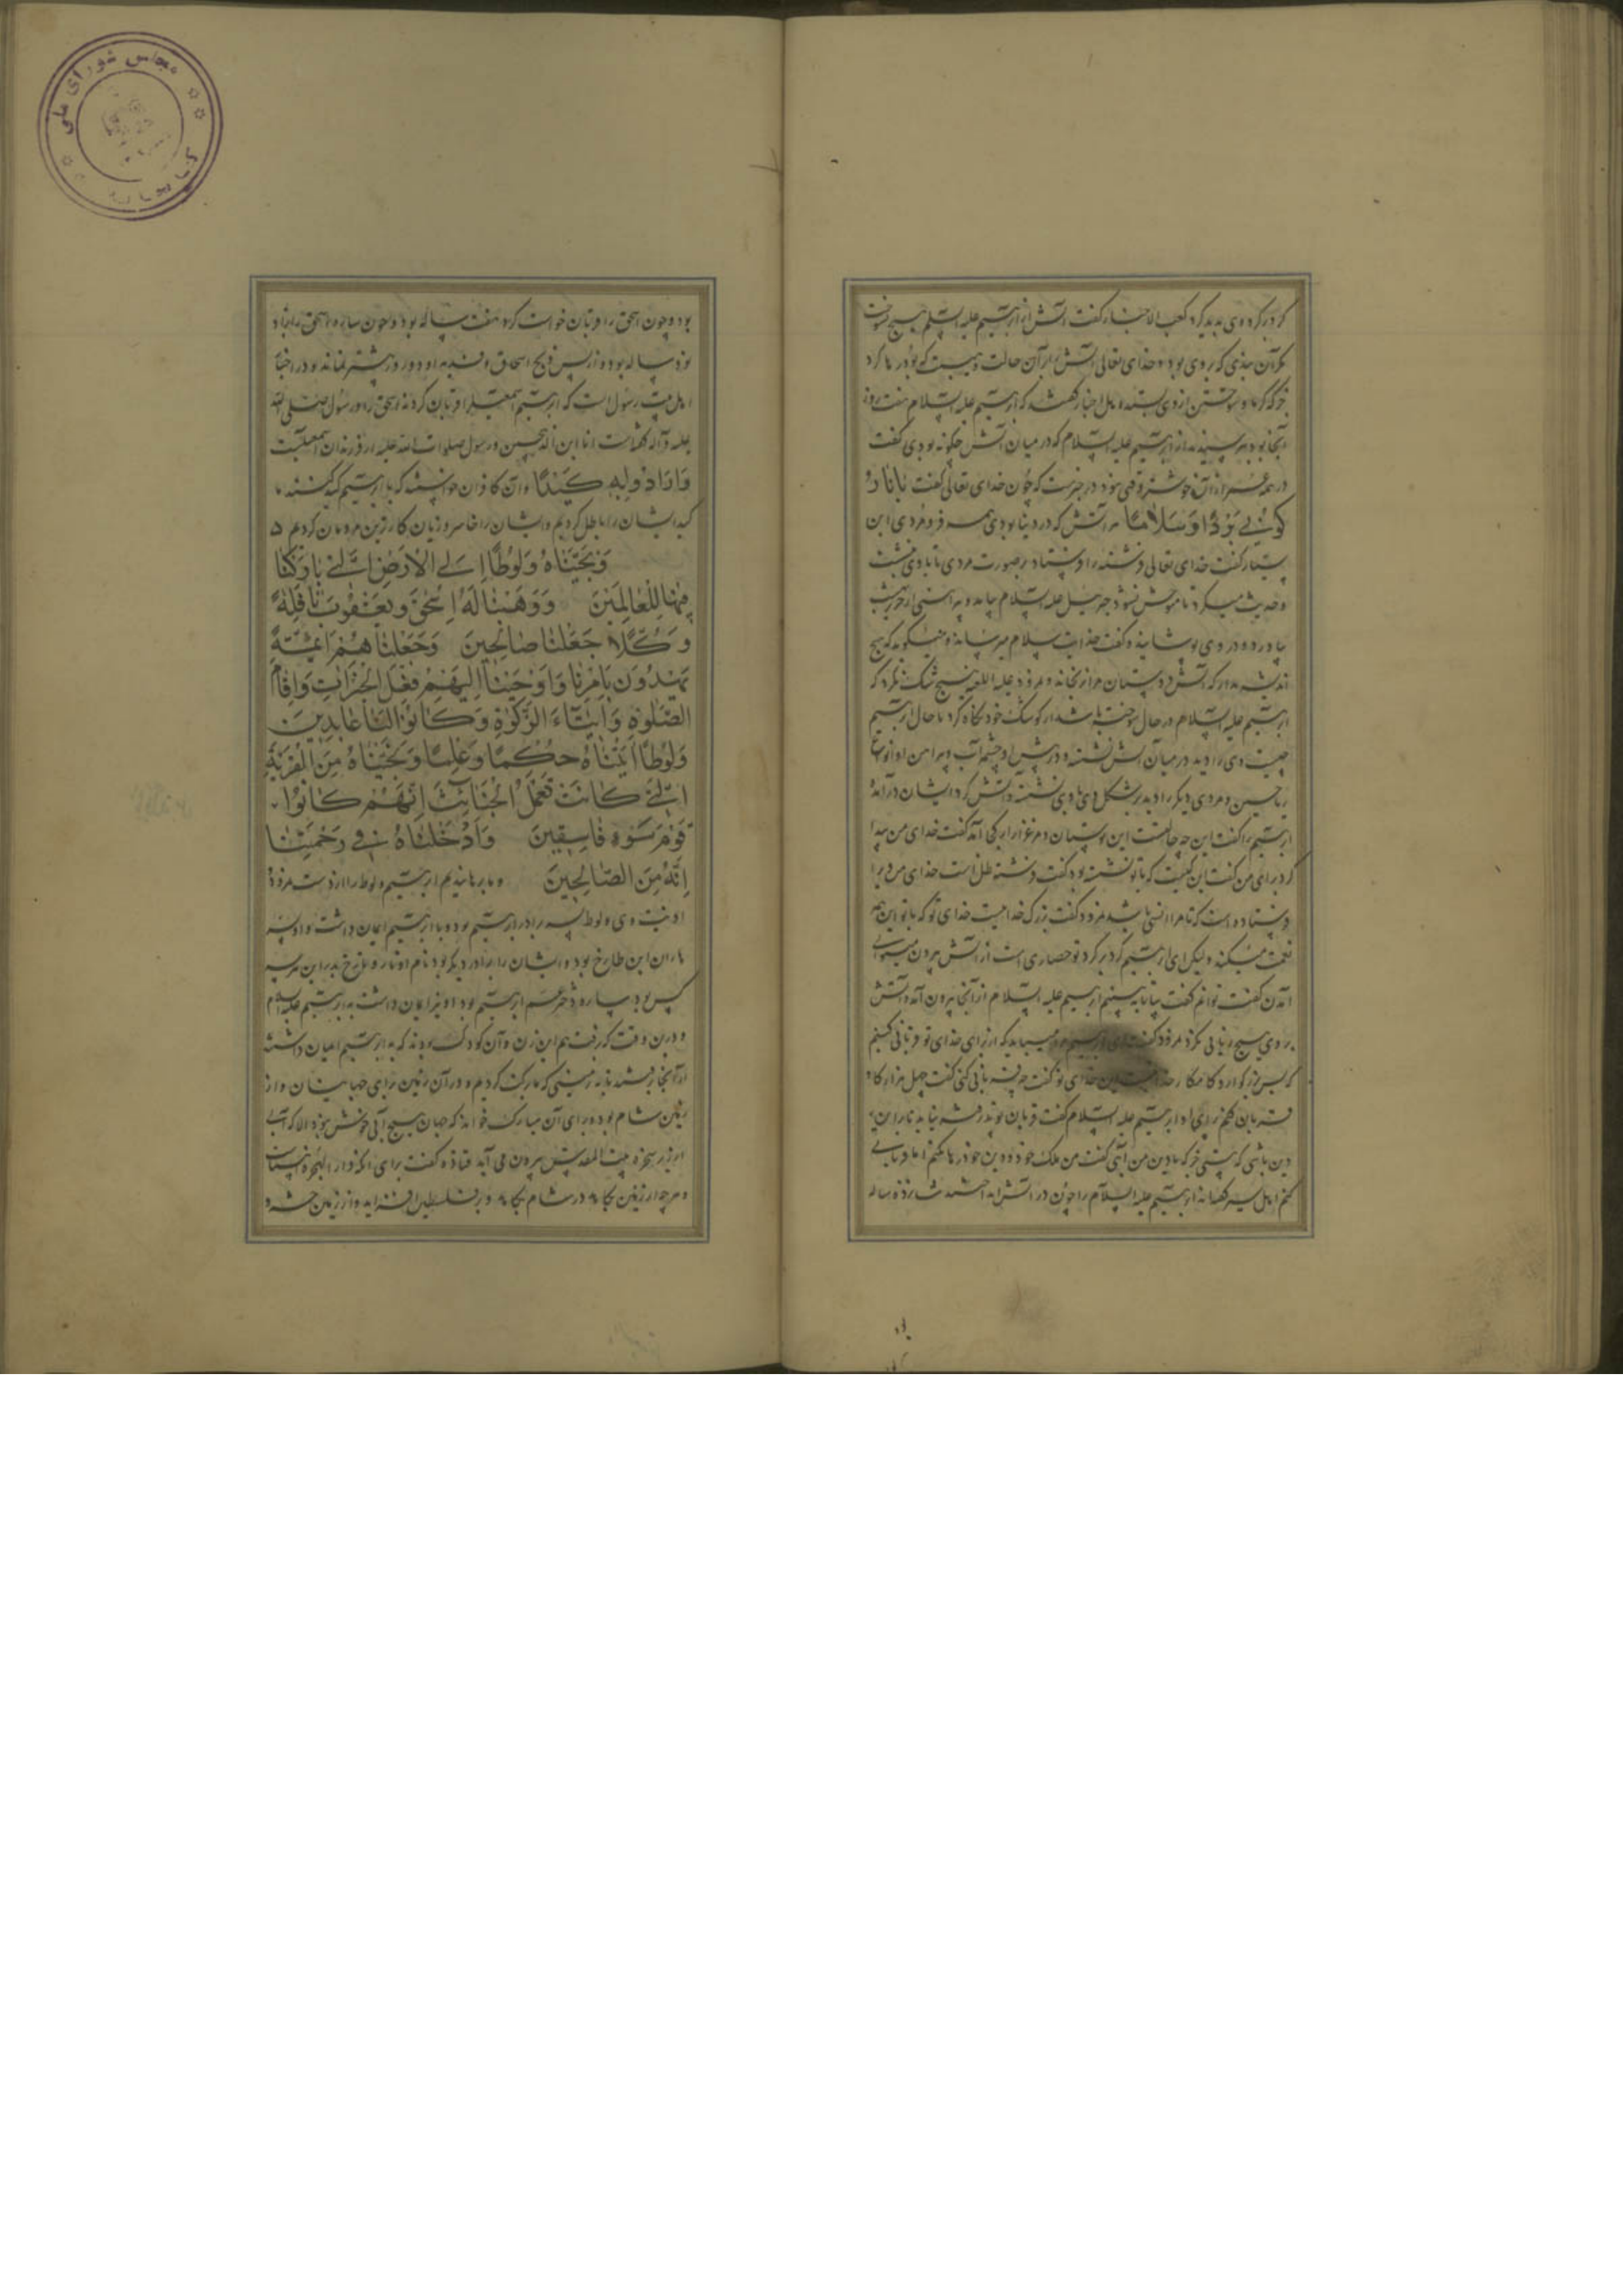 کرد بر کرد وی پدید کرد کعب الاحبار گفت آتش از ابرهیم علیه السلم هیچ نسوخت
مگر آن بندی که بر وی بود و خدای تعالی آتش را بر آن حالت و هیبت که بود رها کرد
آنجا بود بپرسیدند از ابرهیم علیه السلام که در میان آتش چگونه بودی گفت
در همه عمر مرا از آن خوشتر وقتی نبود در خبرست که چون خدای تعالی گفت یا نار
کونی بردا وسلاما هر آتش که در دنیا بودی همه فرو مردی ابن
یسار گفت خدای تعالی فرشته را فرستاد بر صورت مردی تا با وی نشست
و حدیث میکرد تا موحش نشود جبرئیل علیه السلام بیامد و پیراهنی از حریر بهشت
بیاورد و در وی پوشانید و گفت خدایت سلام میرساند و میگوید که هیچ
اندیشه مدار که آتش دوستان مرا نرنجاند و نمرود علیه اللعنه هیچ شک نکرد که
ابرهیم علیه السلام در حال سوخته باشد از کوشک خود نگاه کرد تا حال ابرهیم
چیست وی را دید در میان آتش نشسته و در پیش او چشمه آب و پیرامن او انواع
ریاحین و مردی دیگر را دید بر شکل وی با وی نشسته و آتش گرد ایشان در آمده
ابرهیم را گفت این چه حالتست این بوستان و مرغزار از کجا آمد گفت خدای من پیدا
کرد برای من گفت این کیست که با تو نشسته بود گفت فرشته ظل است خدای من ویرا
فرستاده است که تا مرا انسی باشد نمرود گفت بزرگ خداییست خدای تو که با تو این همه
نعمت میکند ولیکن ای ابرهیم گرد بر گرد تو حصاری است از آتش بیرون میتوانی
آمدن گفت توانم گفت بیا تا ببینم ابرهیم علیه السلام از آنجا بیرون آمد و آتش
بر وی هیچ زیانی نکرد نمرود گفت ای ابرهیم مرا میباید که از برای خدای تو قربانی کنم
که بس بزرگوار و کامکار خداییست این خدای تو گفت چه قربانی کنی گفت چهل هزار گاو
قربان کنم برای او ابرهیم علیه السلام گفت قربان تو پذرفته نیاید تا بر این
دین باشی که هستی جز که با دین من آیی گفت من ملک خود و دین خود رها نکنم اما قربانی
کنم اهل سیر گفتند ابرهیم علیه السلام را چون در آتش انداختند شانزده ساله
بود و چون اسحق را قربان خواست کرد هفت ساله بود و چون ساره اسحق را بزاد
نود ساله بود و از پس ذبح اسحاق و فدیه او دو روز بیشتر نماند و در اخبار
اهل بیت رسول است که ابرهیم اسمعیل را قربان کرد نه اسحق را و رسول صلی الله
علیه وآله گفته است انا ابن الذبیحین و رسول صلوات الله علیه از فرزندان اسمعیلست
وَاَرَادُوا بِهِ كَيْدًا و آن کافران خواستند که با ابرهیم کید کنند ما
کید ایشان را باطل کردیم و ایشان را خاسر و زیان کارترین مردمان کردیم
وَنَجَّيْنَاهُ وَلُوطًا اِلَى الْاَرْضِ الَّتِى بَارَكْنَا
فِيهَا لِلْعَالَمِينَ وَوَهَبْنَا لَهُ اِسْحٰقَ وَيَعْقُوبَ نَافِلَةً
وَكُلًّا جَعَلْنَا صَالِحِينَ وَجَعَلْنَاهُمْ اَئِمَّةً
يَهْدُونَ بِاَمْرِنَا وَاَوْحَيْنَا اِلَيْهِمْ فِعْلَ الْخَيْرَاتِ وَاِقَامَ
الصَّلٰوةِ وَاِيتَاءَ الزَّكٰوةِ وَكَانُوا لَنَا عَابِدِينَ
وَلُوطًا اٰتَيْنَاهُ حُكْمًا وَعِلْمًا وَنَجَّيْنَاهُ مِنَ الْقَرْيَةِ
الَّتِى كَانَتْ تَعْمَلُ الْخَبَائِثَ اِنَّهُمْ كَانُوا
قَوْمَ سَوْءٍ فَاسِقِينَ وَاَدْخَلْنَاهُ فِى رَحْمَتِنَا
اِنَّهُ مِنَ الصَّالِحِينَ و ما برهانیدیم ابرهیم و لوط را از دست نمرود
و لوط پسر برادر ابرهیم بود و با ابرهیم ایمان داشت و او پسر
هاران ابن طارخ بود و ایشان را برادر دیگر بود نام او ناحور و طارخ پدر این هر سه
کس بود ساره دختر عم ابرهیم بود او نیز ایمان داشت به ابرهیم علیه السلام
و درین وقت که رفت هم این زن و آن کودک بودند که به ابرهیم ایمان داشتند
از آنجا برفتند به زمینی که ما برکت کردیم در آن زمین برای جهانیان و از
زمین شام بود و برای آن مبارک خواند که جهان هیچ آبی خوش نبود الا که آب
از زیر سخره بیت المقدس بیرون می آید قتاده گفت برای آنکه
و هر چه از زمین بکاهد در شام بکاهد و در فلسطین افزاید و از زمین حشر
مجلس شورای ملی
کتابخانه